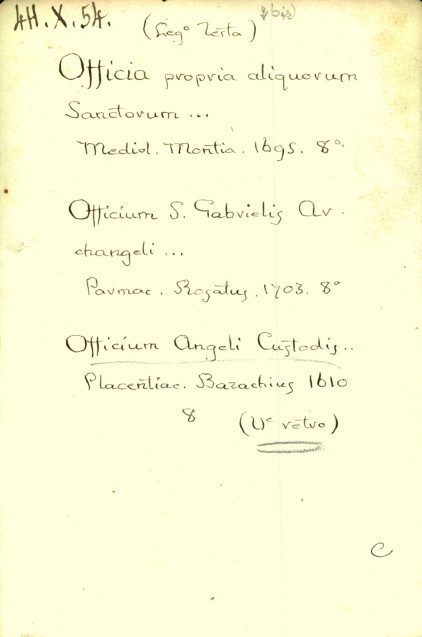 44.X.54. 2 bis)
(Lieg° Testa)
Officia propria aliquorum
Sanctorum ...
Mediol. Montia. 1695. 8°
Officium S. Gabrielis Ar-
changeli ...
Parmae. Rosatus. 1703. 8°
Officium Angeli Custodis..
Placentiae. Bazachius 1610
8 (Ve retro)
C